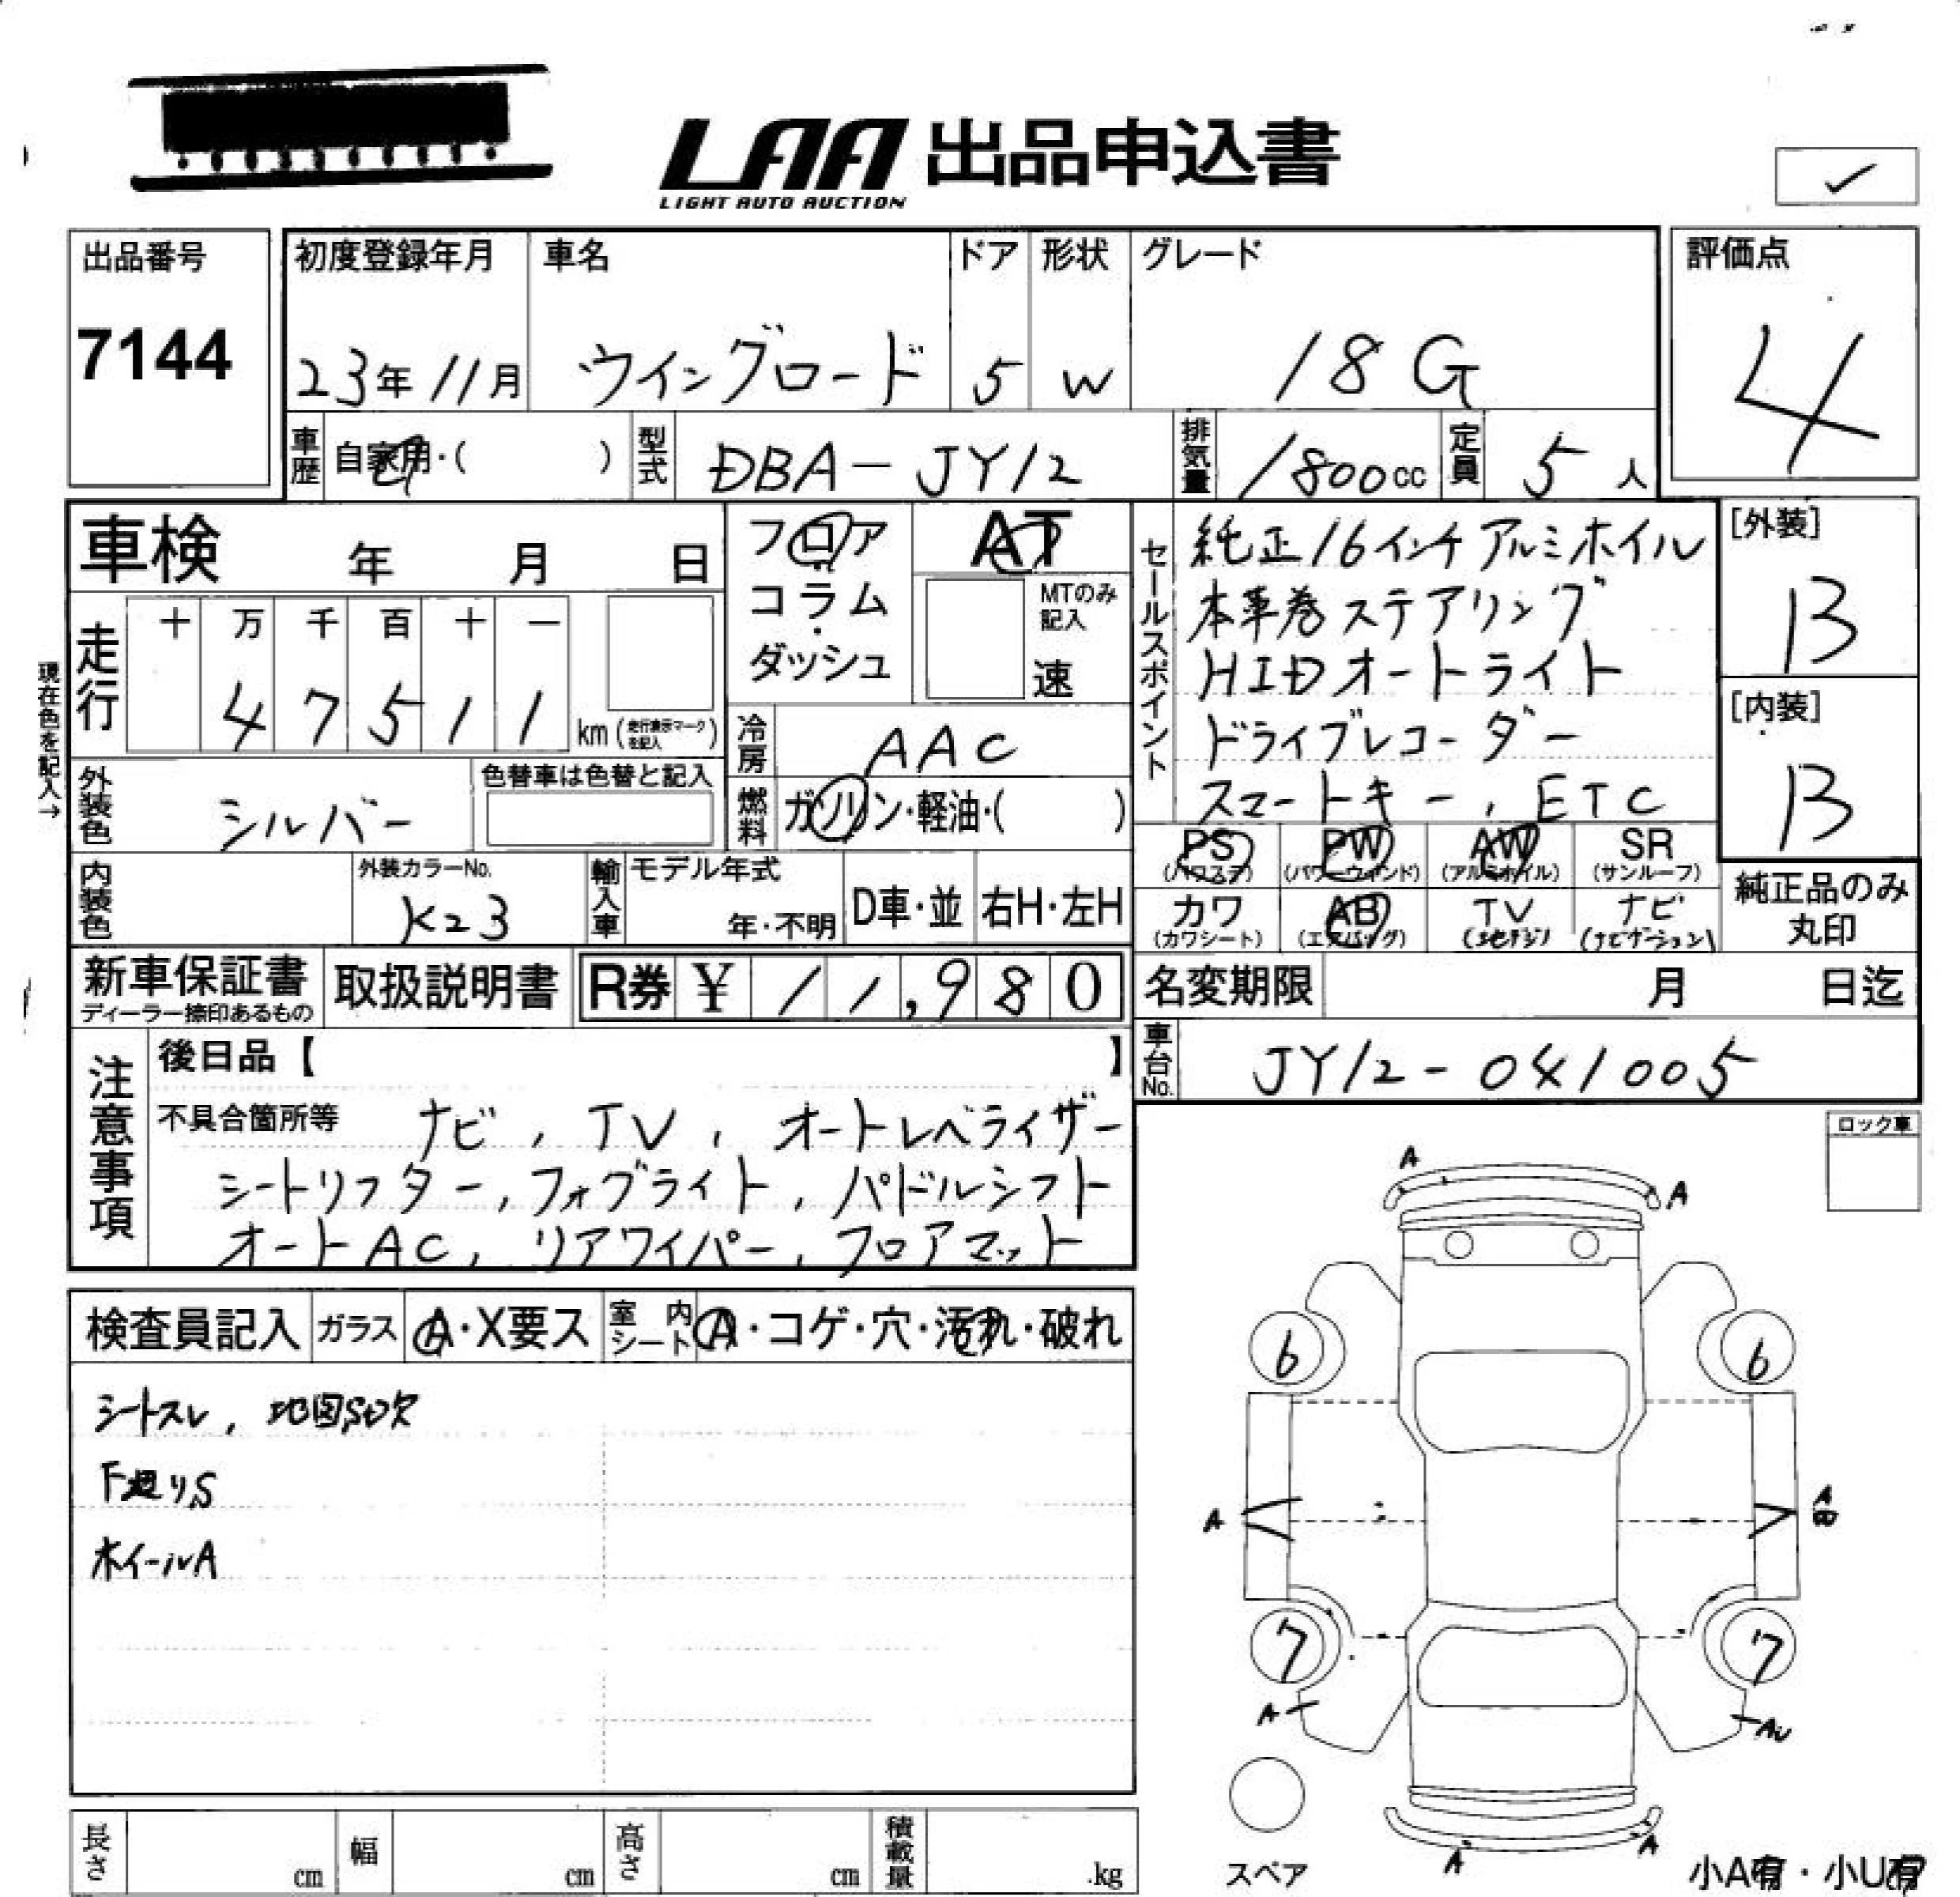 LAA 出品申込書
LIGHT AUTO AUCTION
✓
出品番号
7144
初度登録年月
23年11月
車名
ウイングロード
ドア
5
形状
W
グレード
18G
評価点
4
車歴
自家用・( )
型式
DBA-JY12
排気量
1800cc
定員
5人
車検 年 月 日
走行
十 万 千 百 十 一
4 7 5 1 1 km (走行表示マークを記入)
現在色を記入→
フロア
コラム
・
ダッシュ
AT
MTのみ
記入
速
冷房
AAC
燃料
ガソリン・軽油・( )
セールスポイント
純正16インチアルミホイル
本革巻ステアリング
HIDオートライト
ドライブレコーダー
スマートキー, ETC
[外装]
B
[内装]
B
外装色
シルバー
色替車は色替と記入
内装色
外装カラーNo.
K23
輸入車
モデル年式
年・不明
D車・並
右H・左H
PS
(パワステ)
PW
(パワーウィンド)
AW
(アルミホイル)
SR
(サンルーフ)
カワ
(カワシート)
AB
(エアバッグ)
TV
(地デジ)
ナビ
(ナビゲーション)
純正品のみ
丸印
新車保証書
ディーラー捺印あるもの
取扱説明書
R券 ¥ 11,980
名変期限 月 日迄
車台No.
JY12-041005
注意事項
後日品【 】
不具合箇所等 ナビ, TV, オートレベライザー
シートリフター, フォグライト, パドルシフト
オートAC, リアワイパー, フロアマット
ロック車
検査員記入
ガラス
A・X要ス
室内
シート
A・コゲ・穴・汚れ・破れ
シートスレ, 地図SD欠
F廻りS
ホイールA
A
A
6
6
A
A
7
7
A
AU
A
A
スペア
小A有・小U有
長さ cm
幅 cm
高さ cm
積載量 kg